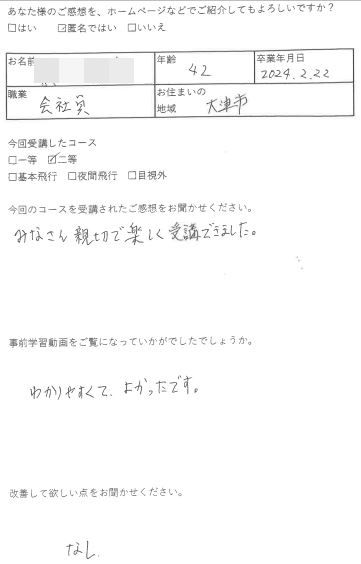 あなた様のご感想を、ホームページなどでご紹介してもよろしいですか？
□はい ☑匿名ではい □いいえ
お名前
年齢 42
卒業年月日 2024.2.22
職業 会社員
お住まいの地域 大津市
今回受講したコース
□一等 ☑二等
□基本飛行 □夜間飛行 □目視外
今回のコースを受講されたご感想をお聞かせください。
みなさん親切で楽しく受講できました。
事前学習動画をご覧になっていかがでしたでしょうか。
わかりやすくて、よかったです。
改善して欲しい点をお聞かせください。
なし.